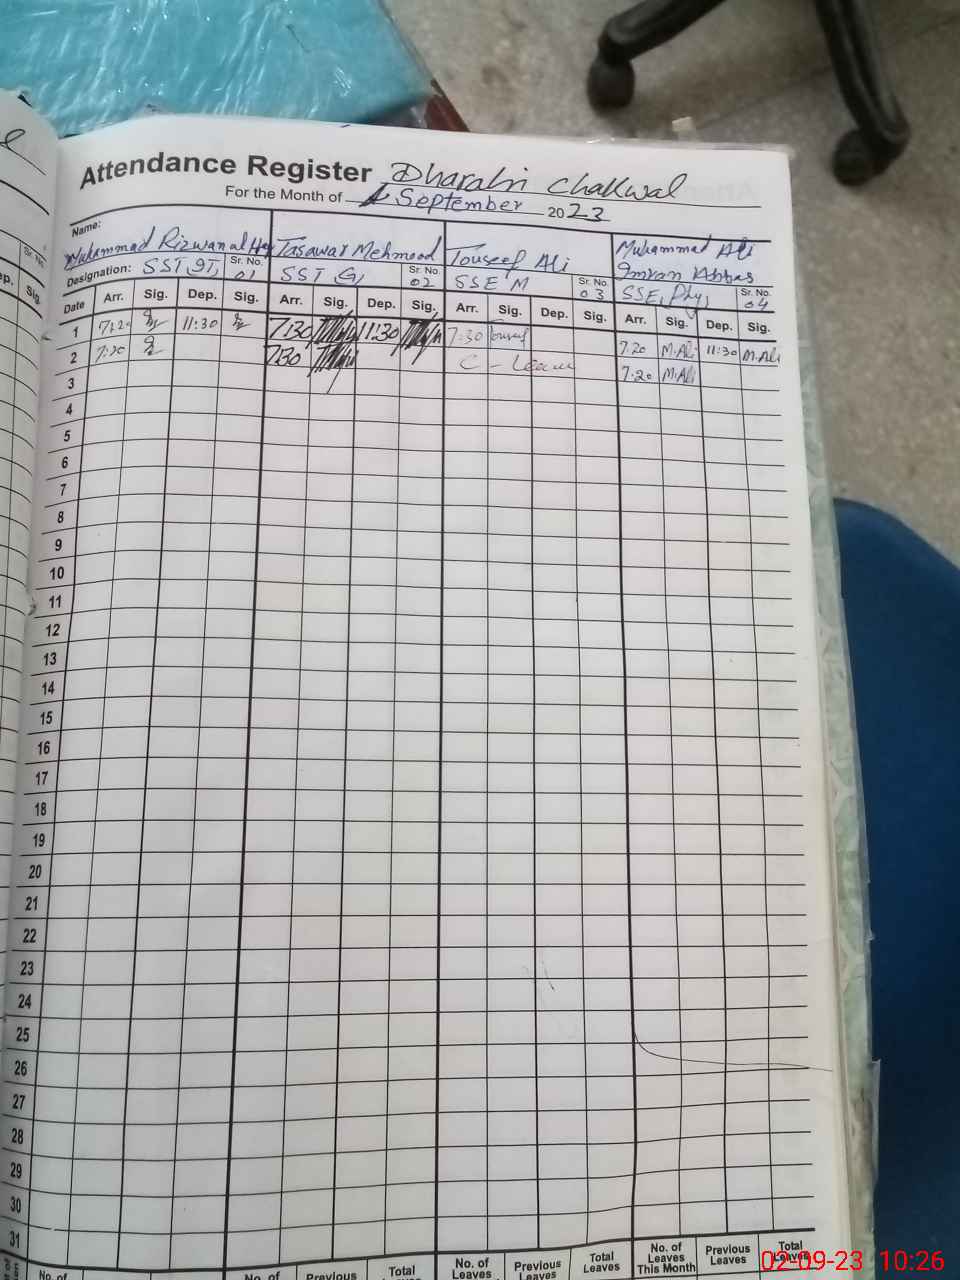 Attendance Register Dharabi Chakwal
For the Month of September 2023
Name:
Muhammad Rizwan al Haq Tasawar Mehmood Touseef Ali Muhammad Ali
Imran Abbas
Designation: SST IT, Sr. No. 01 SST G, Sr. No. 02 SSE M Sr. No. 03 SSE, Phy, Sr. No. 04
Date Arr. Sig. Dep. Sig. Arr. Sig. Dep. Sig. Arr. Sig. Dep. Sig. Arr. Sig. Dep. Sig.
1 7:20 11:30 7:30 11:30 7:30 Touseef 7.20 M.Ali 11:30 M.Ali
2 7:20 7:30 C - Leave 7.20 M.Ali
3
4
5
6
7
8
9
10
11
12
13
14
15
16
17
18
19
20
21
22
23
24
25
26
27
28
29
30
31
No. of No. of Previous Total No. of Leaves Previous Leaves Total Leaves No. of Leaves This Month Previous Leaves Total Leaves
Sr. No.
Sig.
02-09-23 10:26